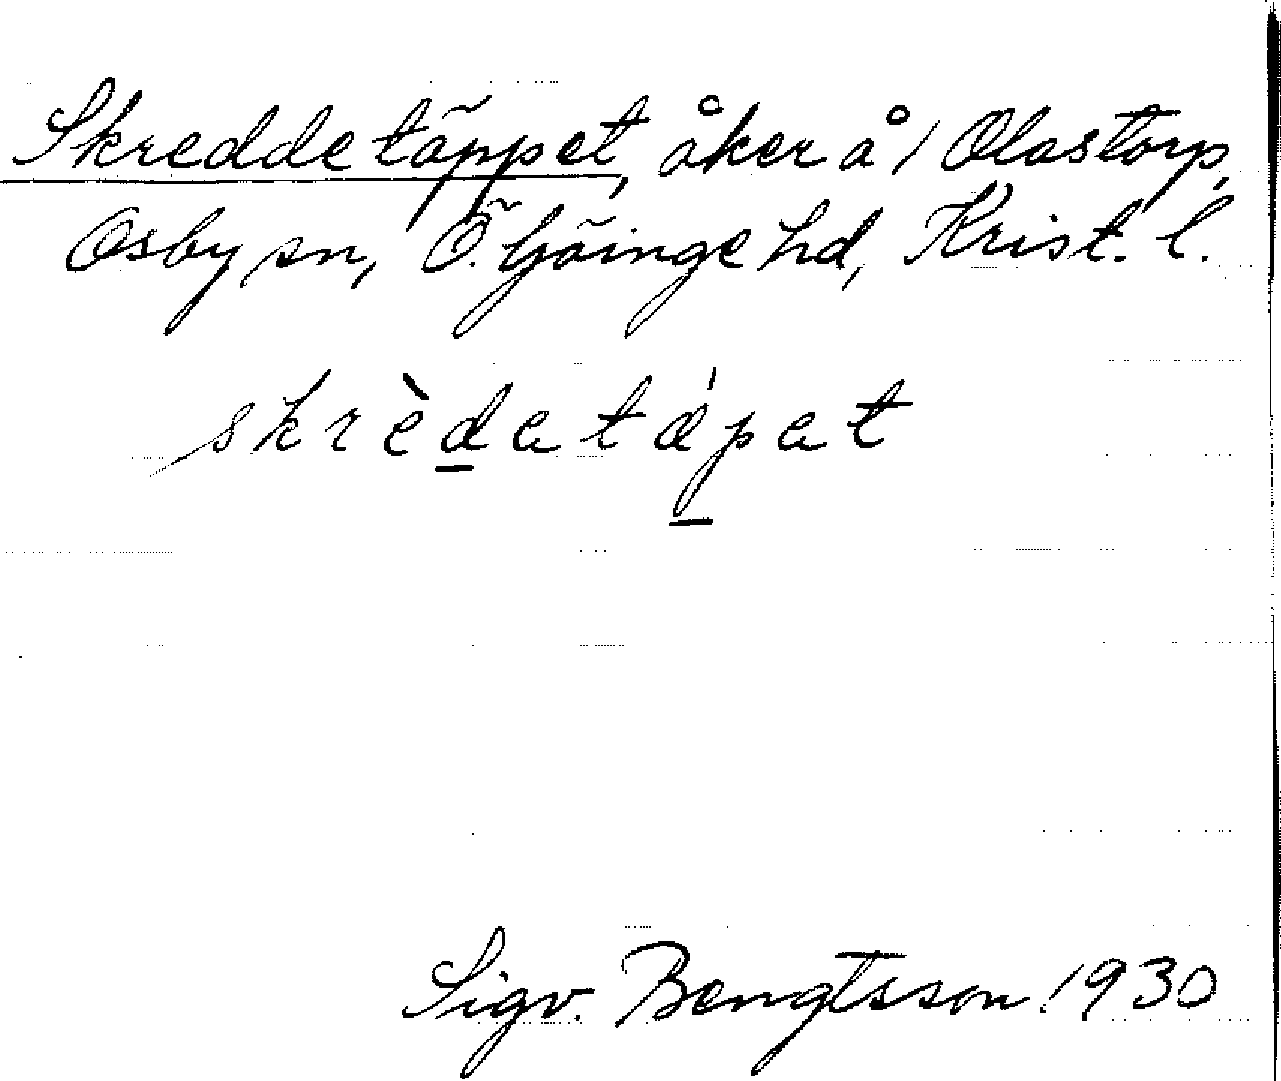 Skreddetäppet, åker å / Olastorp,
Osby sn, Ö. Göinge hd, Krist. l.
skrèdatápat
Sigv. Bengtsson 1930